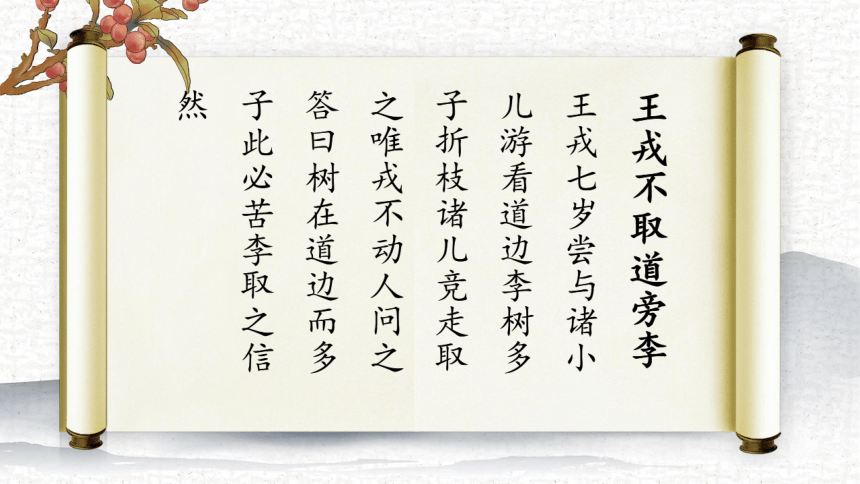 王戎不取道旁李
王戎七岁尝与诸小
儿游看道边李树多
子折枝诸儿竞走取
之唯戎不动人问之
答曰树在道边而多
子此必苦李取之信
然